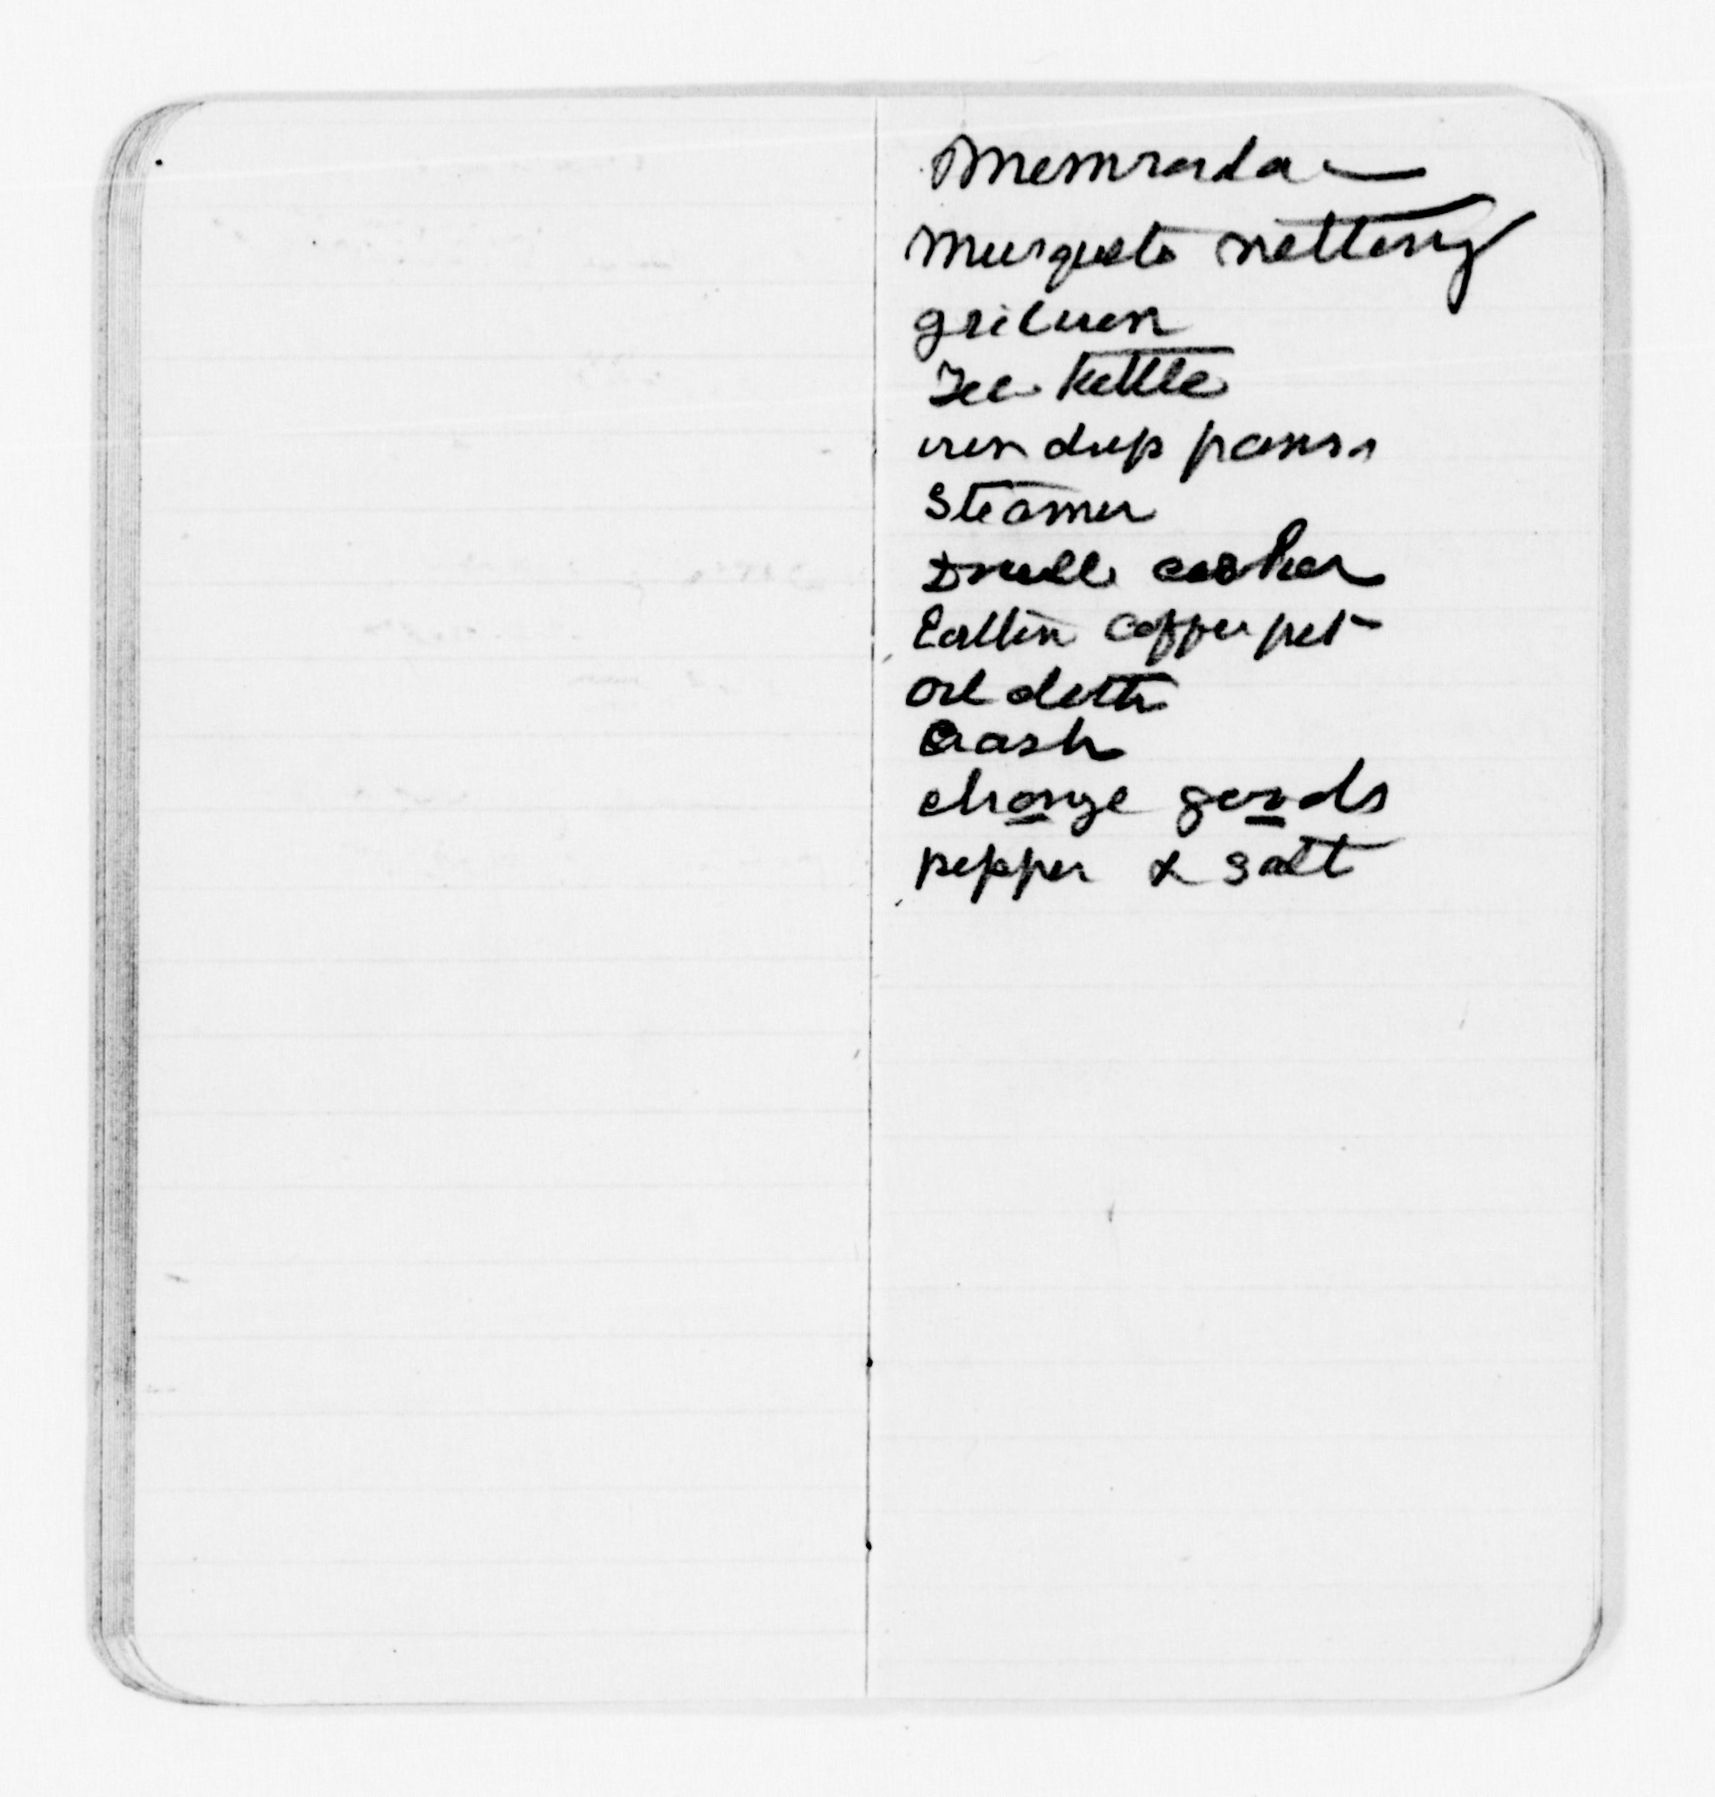 Memranda —
Musqueto netting
gridiron
Tea Kettle
iron drip pans
Steamer
Double cooker
coffee pot
Oil cloth
Crash
change goods
pepper & salt